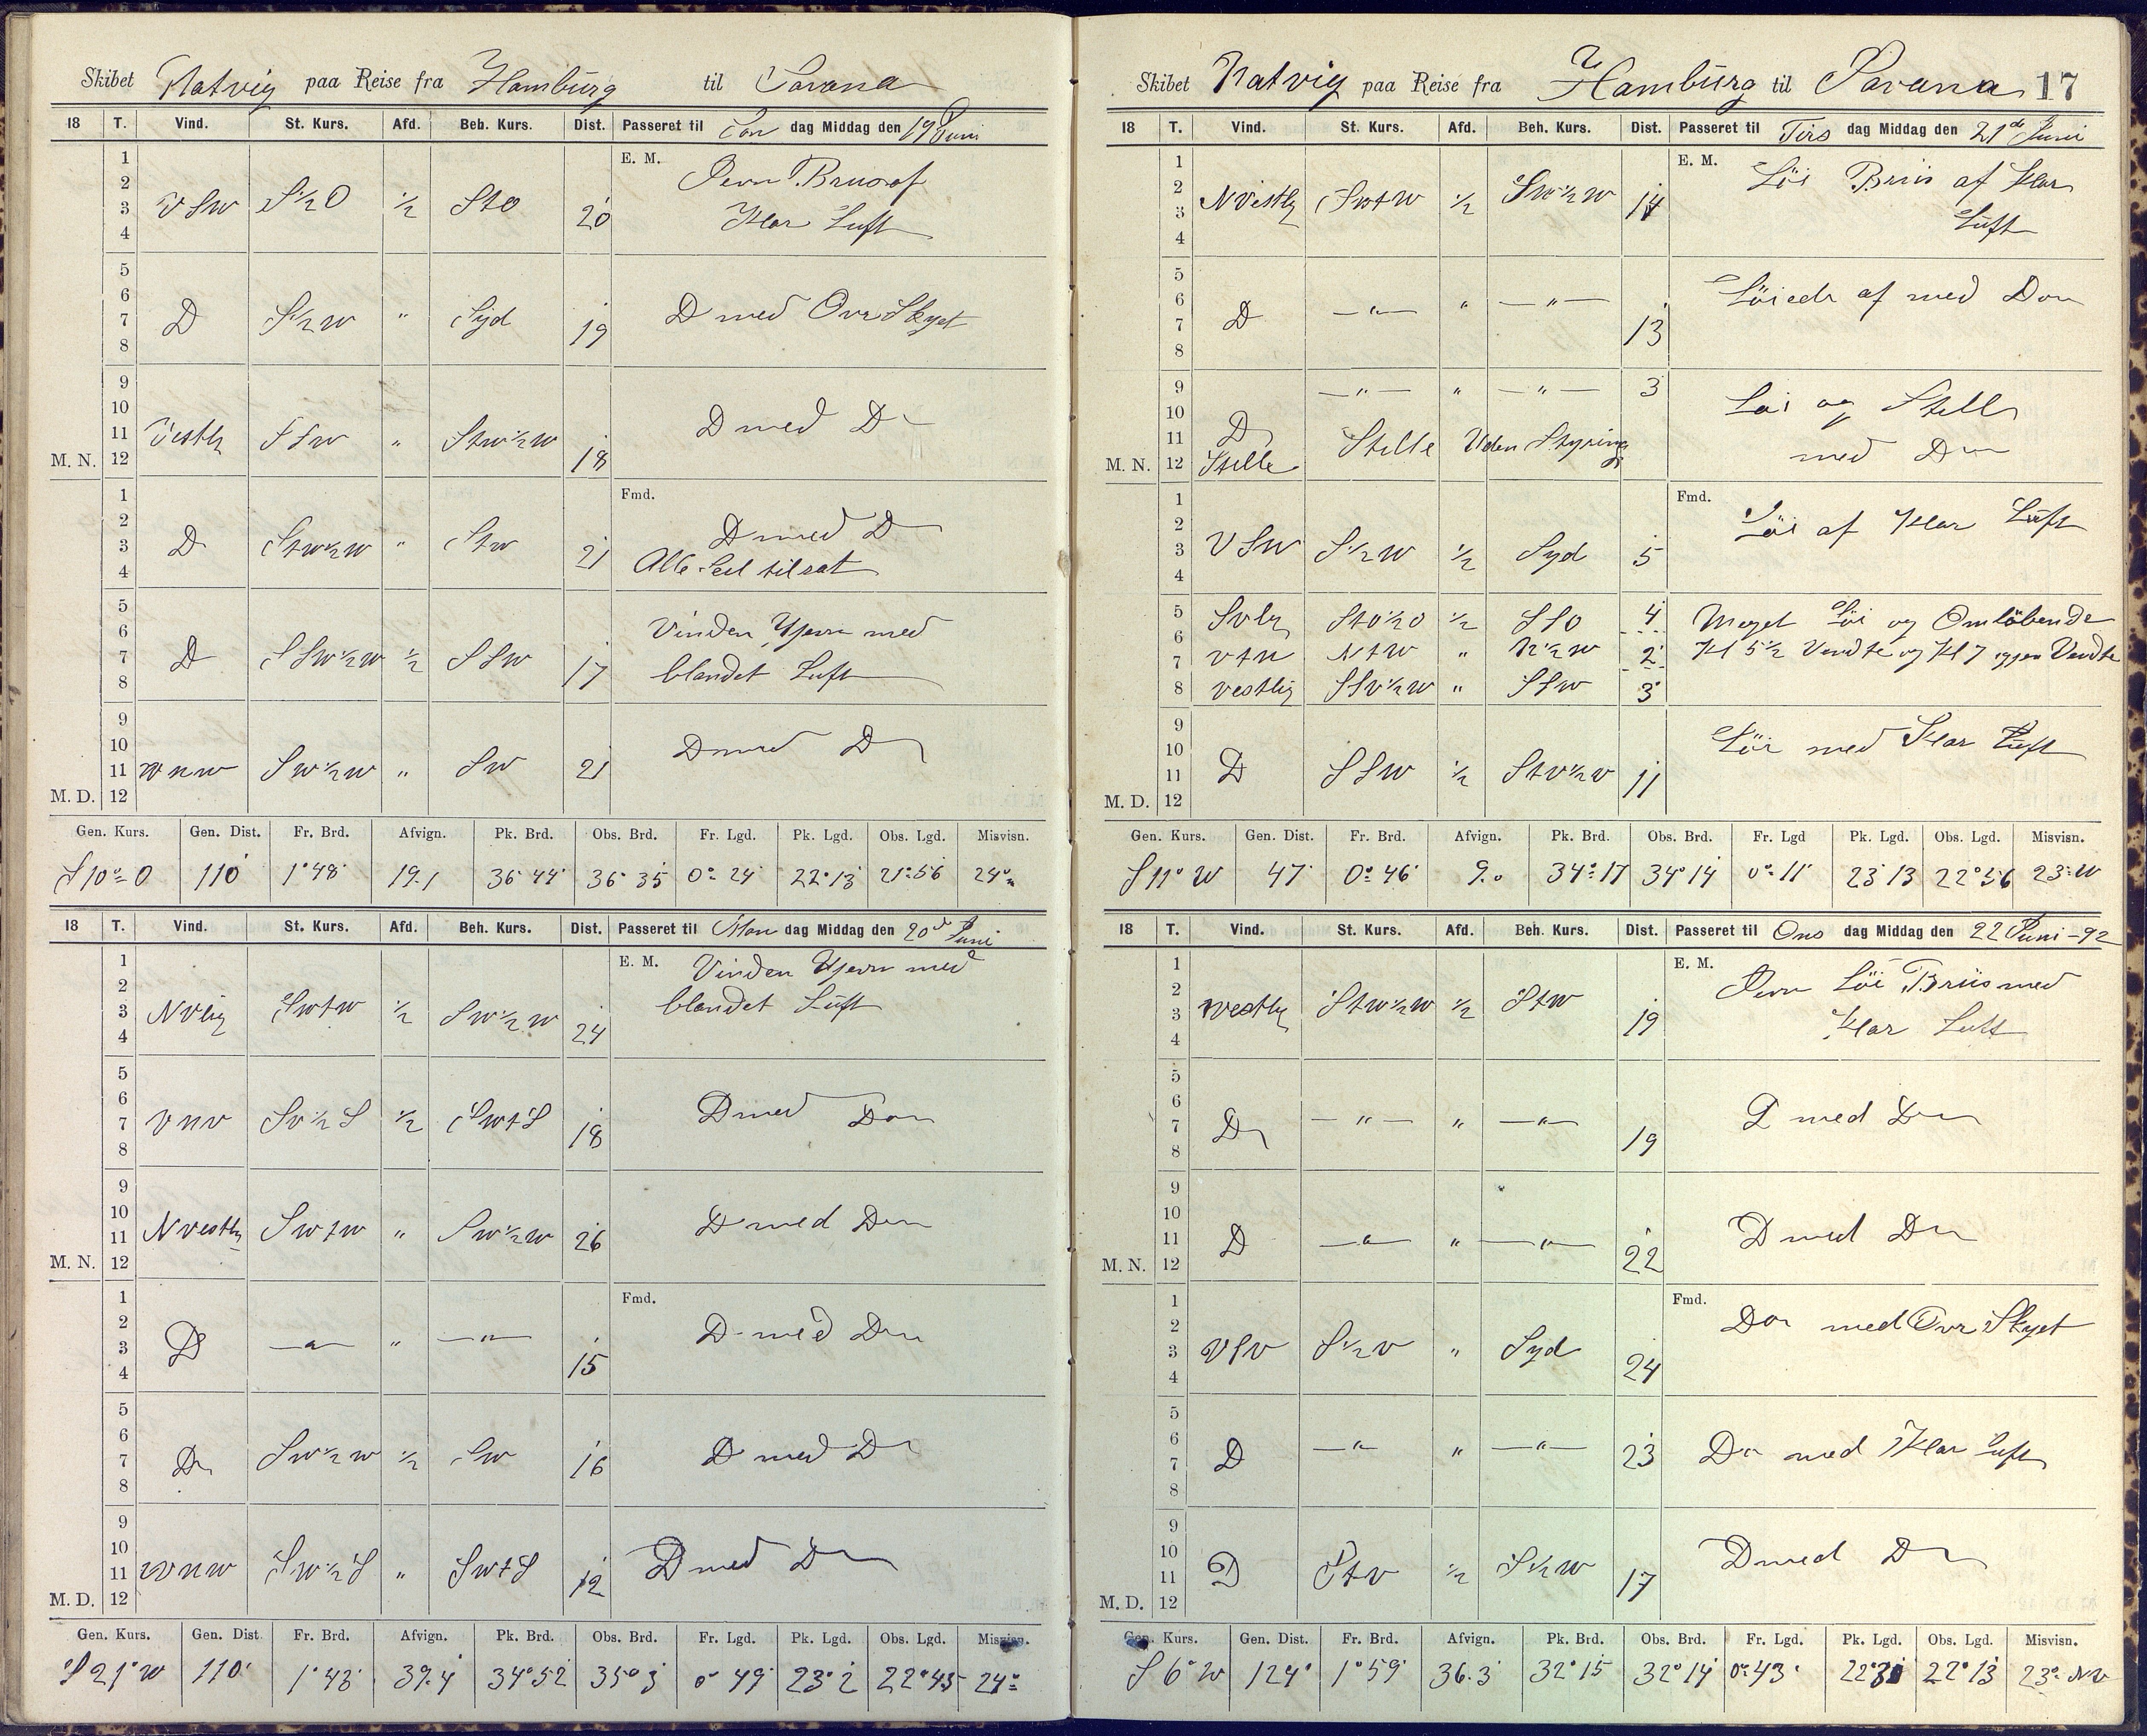 Skibet Hatvig paa Reise fra Hamburg til Savana
18 T. Vind. St. Kurs. Afd. Beh. Kurs. Dist. Passeret til Søn dag Middag den 19 Juni
E. M.
1 2 3 4 VSW S½O ½ StO 20 Jevn Bris af
Klar Luft
5 6 7 8 D S½W " Syd 19 D med Over Skyet
9 10 11 12 M. N. Vestlig SSW " StW½W 18 D med Do
Fmd.
1 2 3 4 D StW½W " StW 21 D med D
Alle Seil tilsat
5 6 7 8 D SSW½W ½ SSW 17 Vinden Ujevn med
blandet Luft
9 10 11 12 M. D. WNW SW½W " SW 21 D med D
Gen. Kurs. Gen. Dist. Fr. Brd. Afvign. Pk. Brd. Obs. Brd. Fr. Lgd. Pk. Lgd. Obs. Lgd. Misvisn.
S 10° O 110 1°48' 19.1 36°44' 36°35 0°24' 22°13 21°56 24°
18 T. Vind. St. Kurs. Afd. Beh. Kurs. Dist. Passeret til Man dag Middag den 20d Juni
E. M.
1 2 3 4 NVlig SWtW ½ SW½W 24 Vinden Ujevn med
blandet Luft
5 6 7 8 VNV SV½S ½ SWtS 18 D med Do
9 10 11 12 M. N. NVestlig SWtW " SW½W 26 D med Do
Fmd.
1 2 3 4 D — " — " — " — 15 D med Do
5 6 7 8 Do SW½W ½ SW 16 D med Do
9 10 11 12 M. D. WNW SW½S " SWtS 12 D med Do
Gen. Kurs. Gen. Dist Fr. Brd. Afvign. Pk. Brd. Obs. Brd. Fr. Lgd. Pk. Lgd. Obs. Lgd. Misvisn.
S 21° W 110' 1°43' 39.4 34°52 35°3 0°49' 23°2 22°45 24°
Skibet Hatvig paa Reise fra Hamburg til Savana 17
18 T. Vind. St. Kurs. Afd. Beh. Kurs. Dist. Passeret til Tirs dag Middag den 21de Juni
E. M.
1 2 3 4 NVestlig SWtW ½ SW½W 14 Löi Briis af Klar
Luft
5 6 7 8 D — " — " — " — 13 Löiede af med Do
9 10 11 12 M. N. — " — " — " — 3 Löi og Stille
D Stille Stille Uden Styring med Do
Fmd.
1 2 3 4 VSW S½W ½ Syd 5 Löi af Klar Luft
5 SVlig StO½O ½ SSO 4 Meget Löi og Omlöbende
6 7 VtN NtW " N½W 2 Kl 5½ Vendte og Kl 7 iggen Vendte
8 Vestlig SSV½W " SSW 3
9 10 11 12 M. D. D SSW ½ StV½V 11 Löi med Klar Luft
Gen. Kurs. Gen. Dist. Fr. Brd. Afvign. Pk. Brd. Obs. Brd. Fr. Lgd Pk. Lgd. Obs. Lgd. Misvisn.
S 11° W 47 0°46' 9.0 34°17 34°14 0°11' 23°13 22°56 23°W
18 T. Vind. St. Kurs. Afd. Beh. Kurs. Dist. Passeret til Ons dag Middag den 22 Juni -92
E. M.
1 2 3 4 Westlig StW½W ½ StW 19 Jevn Löi Briis med
Klar Luft
5 6 7 8 Do — " — " — " — 19 D med Do
9 10 11 12 M. N. D — " — " — " — 22 D med Do
Fmd.
1 2 3 4 VSV S½V " Syd 24 Do med Over Skyet
5 6 7 8 D — " — " — " — 23 Do med Klar Luft
9 10 11 12 M. D. D StV ½ S½W 17 D med Do
Gen. Kurs. Gen. Dist. Fr. Brd. Afvign. Pk. Brd. Obs. Brd. Fr. Lgd. Pk. Lgd. Obs. Lgd. Misvisn.
S 6° W 124' 1°59' 36.3 32°15 32°14 0°43' 22°30 22°13 23° NV